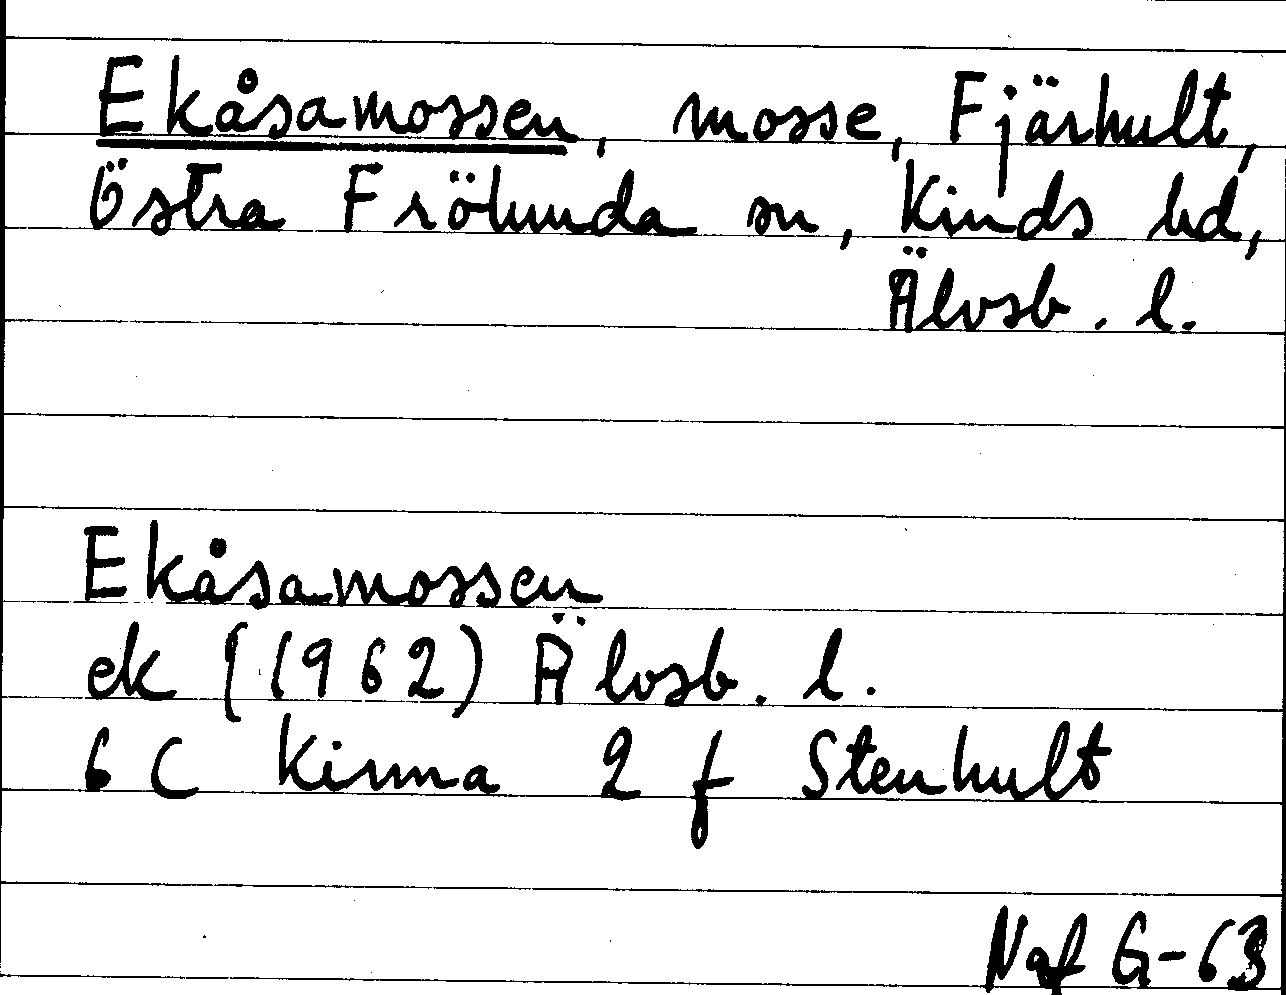 Ekåsamossen, mosse, Fjärhult,
Östra Frölunda sn, Kinds hd,
Älvsb. l.
Ekåsamossen
ek (1962) Älvsb. l.
6 C Kinna 2 f Stenhult
Naf G-63